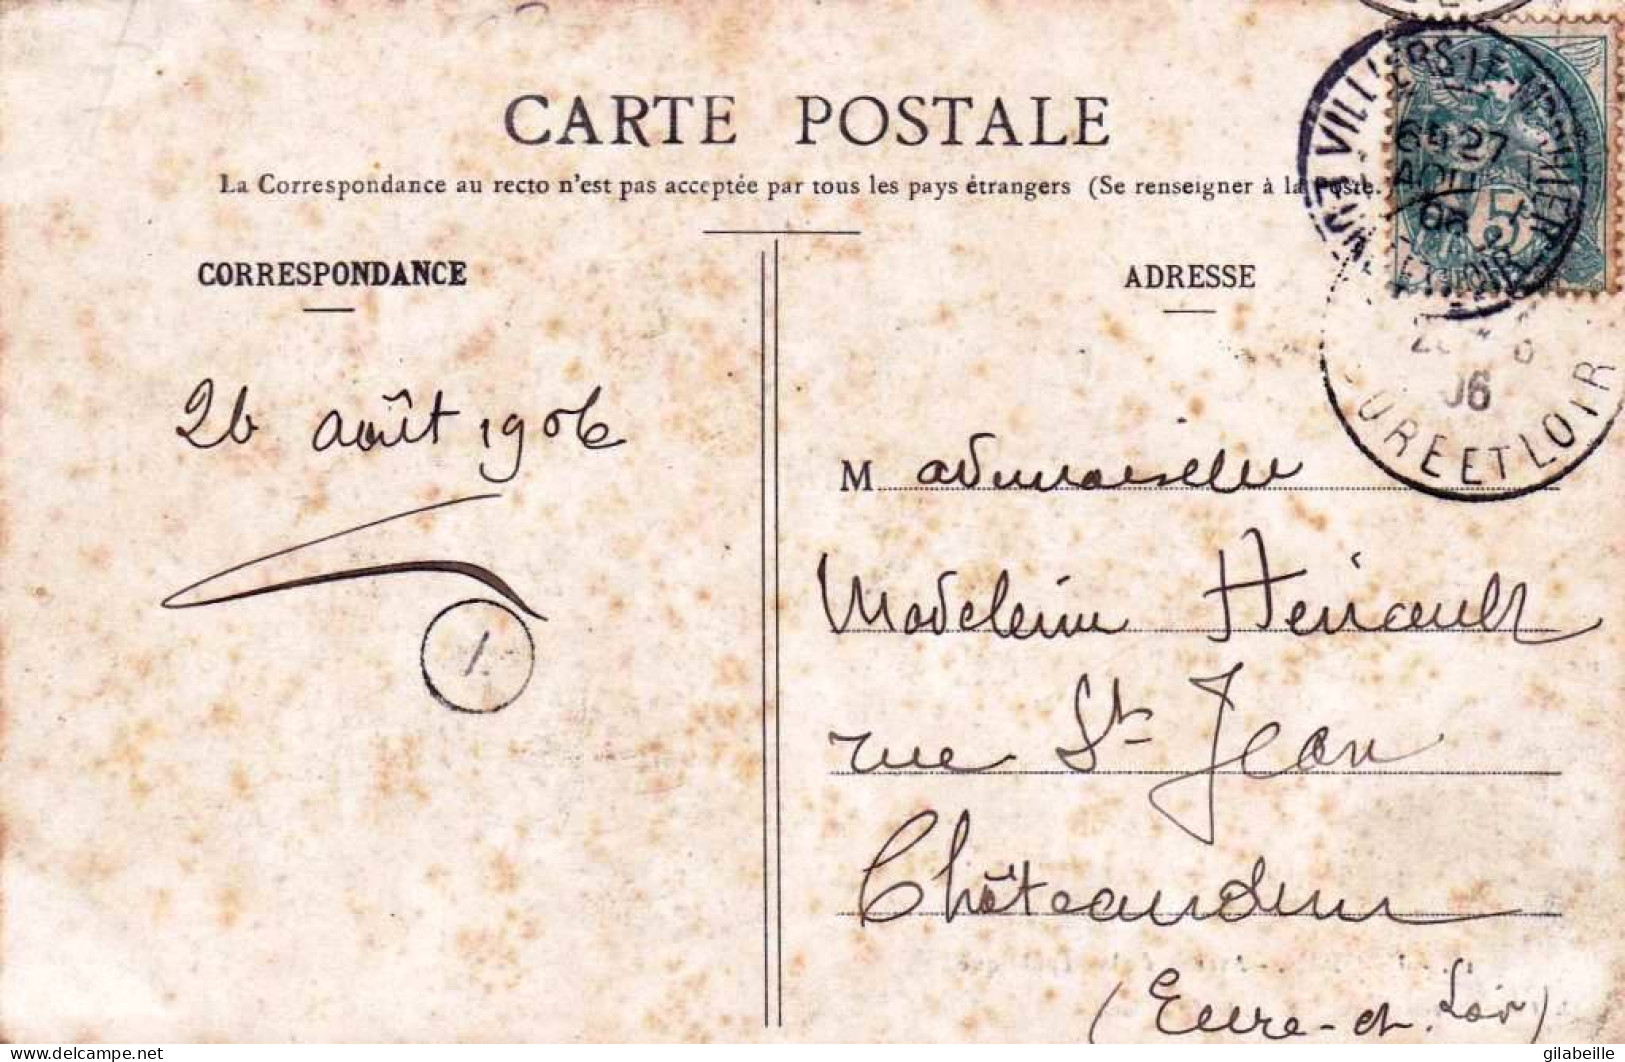 CARTE POSTALE
La Correspondance au recto n'est pas acceptée par tous les pays étrangers (Se renseigner à la Poste.)
CORRESPONDANCE
ADRESSE
VILLIERS-LE-MORHIER
6H 27
AOU
06
EURE ET LOIR
5
06
EURE ET LOIR
26 août 1906
1
Mademoiselle
Madeleine Hénault
rue St Jean
Châteaudun
(Eure-et-Loir)
delcampe.net
gilabeille